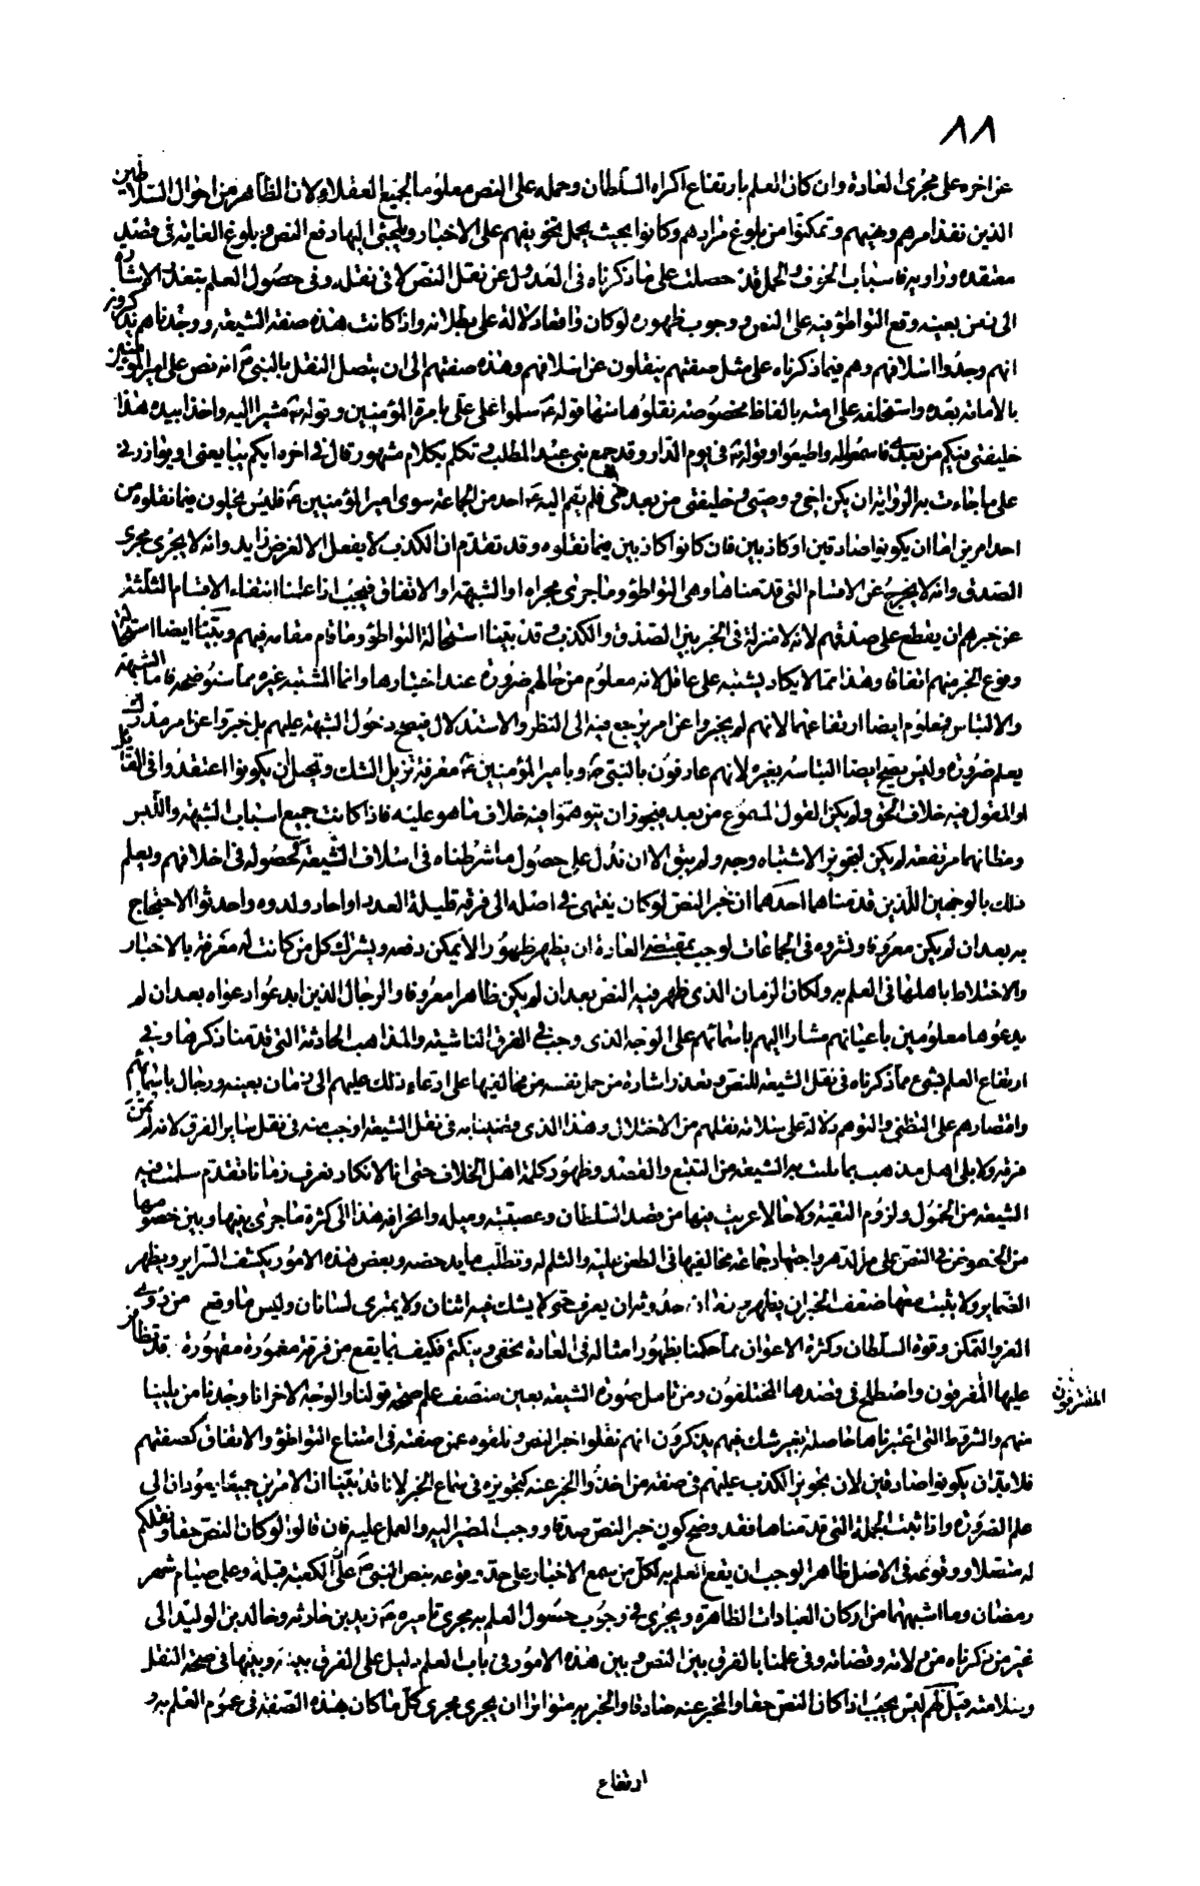 ٨٨
عن اخره على مجرى العادة وان كان العلم بارتفاع اكراه السلطان وحمله على النص معلوما لجميع العقلاء لان الظاهر من احوال السلاطين
الذين نفذ امرهم ونهيهم وتمكنوا من بلوغ مرادهم وكانوا بحيث يحمل تخويفهم على الاخبار ويلجئ اليها دفع النص وبلوغ الغاية في قصد
معتقده وراويه فاسباب الخوف والحمل قد حصلت على ما ذكرناه في العدول عن نقل النص لا في نقله وفي حصول العلم بتعذر الاشارة
الى زمن بعينه وقع التواطؤ فيه على النص ووجوب ظهوره لو كان واقعا دلالة على بطلانه واذا كانت هذه صفة الشيعة ووجدناهم يذكرون
انهم وجدوا اسلافهم وهم فيما ذكرناه على مثل صفتهم ينقلون عن اسلافهم وهذه صفتهم الى ان يتصل النقل بالنبي ص انه نص على امير المؤمنين
بالامامة بعده واستخلفه على امته بالفاظ مخصوصة نقلوها منها قوله ع سلموا على علي بامرة المؤمنين وقوله ع مشيرا اليه واخذا بيده هذا
خليفتي فيكم من بعدي فاسمعوا له واطيعوا وقوله ع في يوم الدار وقد جمع بني عبد المطلب وتكلم بكلام مشهور قال في اخره ايكم يبايعني او يوازرني
على ما جاءت به الرواية ان يكن اخي ووصيي وخليفتي من بعدي فلم يقم اليه ع احد من الجماعة سوى امير المؤمنين ع فليس يخلون فيما نقلوه من
احد امرين اما ان يكونوا صادقين او كاذبين فان كانوا كاذبين فيما نقلوه وقد تقدم ان الكذب لا يفعل الا لغرض زايد وانه لا يجرى مجرى
الصدق وانه لا يخرج عن الاقسام التي قدمناها وهي التواطؤ وما جرى مجراه او الشبهة او الاتفاق فيجب اذا علمنا انتفاء الاقسام الثلثة
عن خبرهم ان يقطع على صدقهم لانه لا منزلة في الخبر بين الصدق والكذب وقد بينا استحالة التواطؤ وما قام مقامه فيهم وبينا ايضا استحالة
وقوع الخبر منهم اتفاقا وهذا مما لا يكاد يشتبه على عاقل لانه معلوم من حالهم ضرورة عند اختبارها وانما المشتبه غيره بما سنوضحه فاما الشبهة
والالتباس فمعلوم ايضا ارتفاعهما لانهم لم يخبروا عن امر يرجع فيه الى النظر والاستدلال فيصح دخول الشبهة عليهم بل خبروا عن امر مدرك
يعلم ضرورة وليس يصح ايضا التباسه بغيره لانهم عارفون بالنبي ص وبامير المؤمنين ع معرفة تزيل الشك وتحيل ان يكونوا اعتقدوا في القائل
او المقول فيه خلاف الحق ولم يكن القول المسموع من بعد فيجوز ان يتوهموا فيه خلاف ما هو عليه فاذا كانت جميع اسباب الشبهة واللبس
ومظانهما مرتفعة لم يكن لتجويز الاشتباه وجه ولم يبق الا ان ندل على حصول ما شرطناه في اسلاف الشيعة كحصوله في اخلافهم ويعلم
ذلك بالوجهين اللذين قدمناهما احدهما ان خبر النص لو كان ينتهي في اصله الى فرقة قليلة العدد او احاد ولدوه واحدثوا الاحتجاج
به بعد ان لم يكن معروفا ونشروه في الجماعات لوجب بمقتضى العادة ان يظهر ظهورا لا يمكن دفعه ويشترك كل من كانت له معرفة بالاخبار
والاختلاط باهلها في العلم به ولكان الزمان الذي ظهر فيه النص بعد ان لم يكن ظاهرا معروفا والرجال الذين ابدعوا دعواه بعد ان لم
يدعوها معلومين باعيانهم مشارا اليهم باسمائهم على الوجه الذي وجب في الفرق الناشية والمذاهب الحادثة التي قدمنا ذكرها وفي
ارتفاع العلم بشيء مما ذكرناه في نقل الشيعة للنص وتعذر اشارة من حمل نفسه من مخالفيها على ادعاء ذلك عليهم الى زمان بعينه ورجال باسمائهم
واقتصارهم على التظني والتوهم دلالة على سلامة نقلهم من الاختلال وهذا الذي قضينا به في نقل الشيعة اوجب منه في نقل ساير الفرق لانه لم تمن
فرقة ولا بلى اهل مذهب بما بليت به الشيعة من التتبع والقصد وظهور كلمة اهل الخلاف حتى انا لا نكاد نعرف زمانا تقدم سلمت فيه
الشيعة من الخوف ولزوم التقية ولا حالا عريت فيها من قصد السلطان وعصبيته وميله وانحرافه هذا الى كثرة ما جرى بينها وبين خصومها
من الخوض في النص على مر الدهر واجتهاد جماعة مخالفيها في الطعن عليه والثلم له وتطلب ما يدحضه وبعض هذه الامور يكشف السراير ويظهر
الضماير ولا يثبت معها ضعف الخبر ان يظهر حدوثه ان يعرف حتى لا يشك فيه اثنان ولا يمترى لسانان وليس ما وقع من ذوي
العز والتمكن وقوة السلطان وكثرة الاعوان مما حكمنا بظهور امثاله في العادة يخفى وينكتم فكيف بما يقع من فرقة مغمورة مقهورة قد تظافر
عليها المفرقون واصطلح في قصدها المختلفون ومن تامل صورة الشيعة بعين منصف علم صحة قولنا والوجه الاخر انا وجدنا من يلينا
المتفرقون
منهم والشروط التي اعتبرناها حاصلة بغير شك فيهم يذكرون انهم نقلوا خبر النص وتلقوه عمن صفته في امتناع التواطؤ والاتفاق كصفتهم
فلا بد ان يكونوا صادقين لان تجويز الكذب عليهم في صفة من اخذوا الخبر عنه كتجويزه في سماع الخبر لانا قد بينا ان الامرين جميعا يعودان الى
علم الضرورة واذا ثبت الجملة التي قدمناها فقد وضح كون خبر النص صدقا ووجب المصير اليه والعمل عليه فان قالوا لو كان النص حقا ونقلكم
له متصلا ووقوعه في الاصل ظاهرا لوجب ان يقع العلم به لكل من سمع الاخبار على حد وقوعه بنص النبي ص على الكعبة قبلة وعلى صيام شهر
رمضان وما اشبههما من اركان العبادات الظاهرة ويجرى في وجوب حصول العلم به مجرى تاميره ع زيد بن حارثة وخالد بن الوليد الى
غير من ذكرناه من ولاته وقضاته وفي علمنا بالفرق بين النص وبين هذه الامور في باب العلم دليل على الفرق بينه وبينها في صحة النقل
وسلامته قيل لهم ليس يجب اذا كان النص حقا والمخبر عنه صادقا والخبر به متواترا ان يجرى مجرى كل ما كان بهذه الصفة في عموم العلم به و
ارتفاع